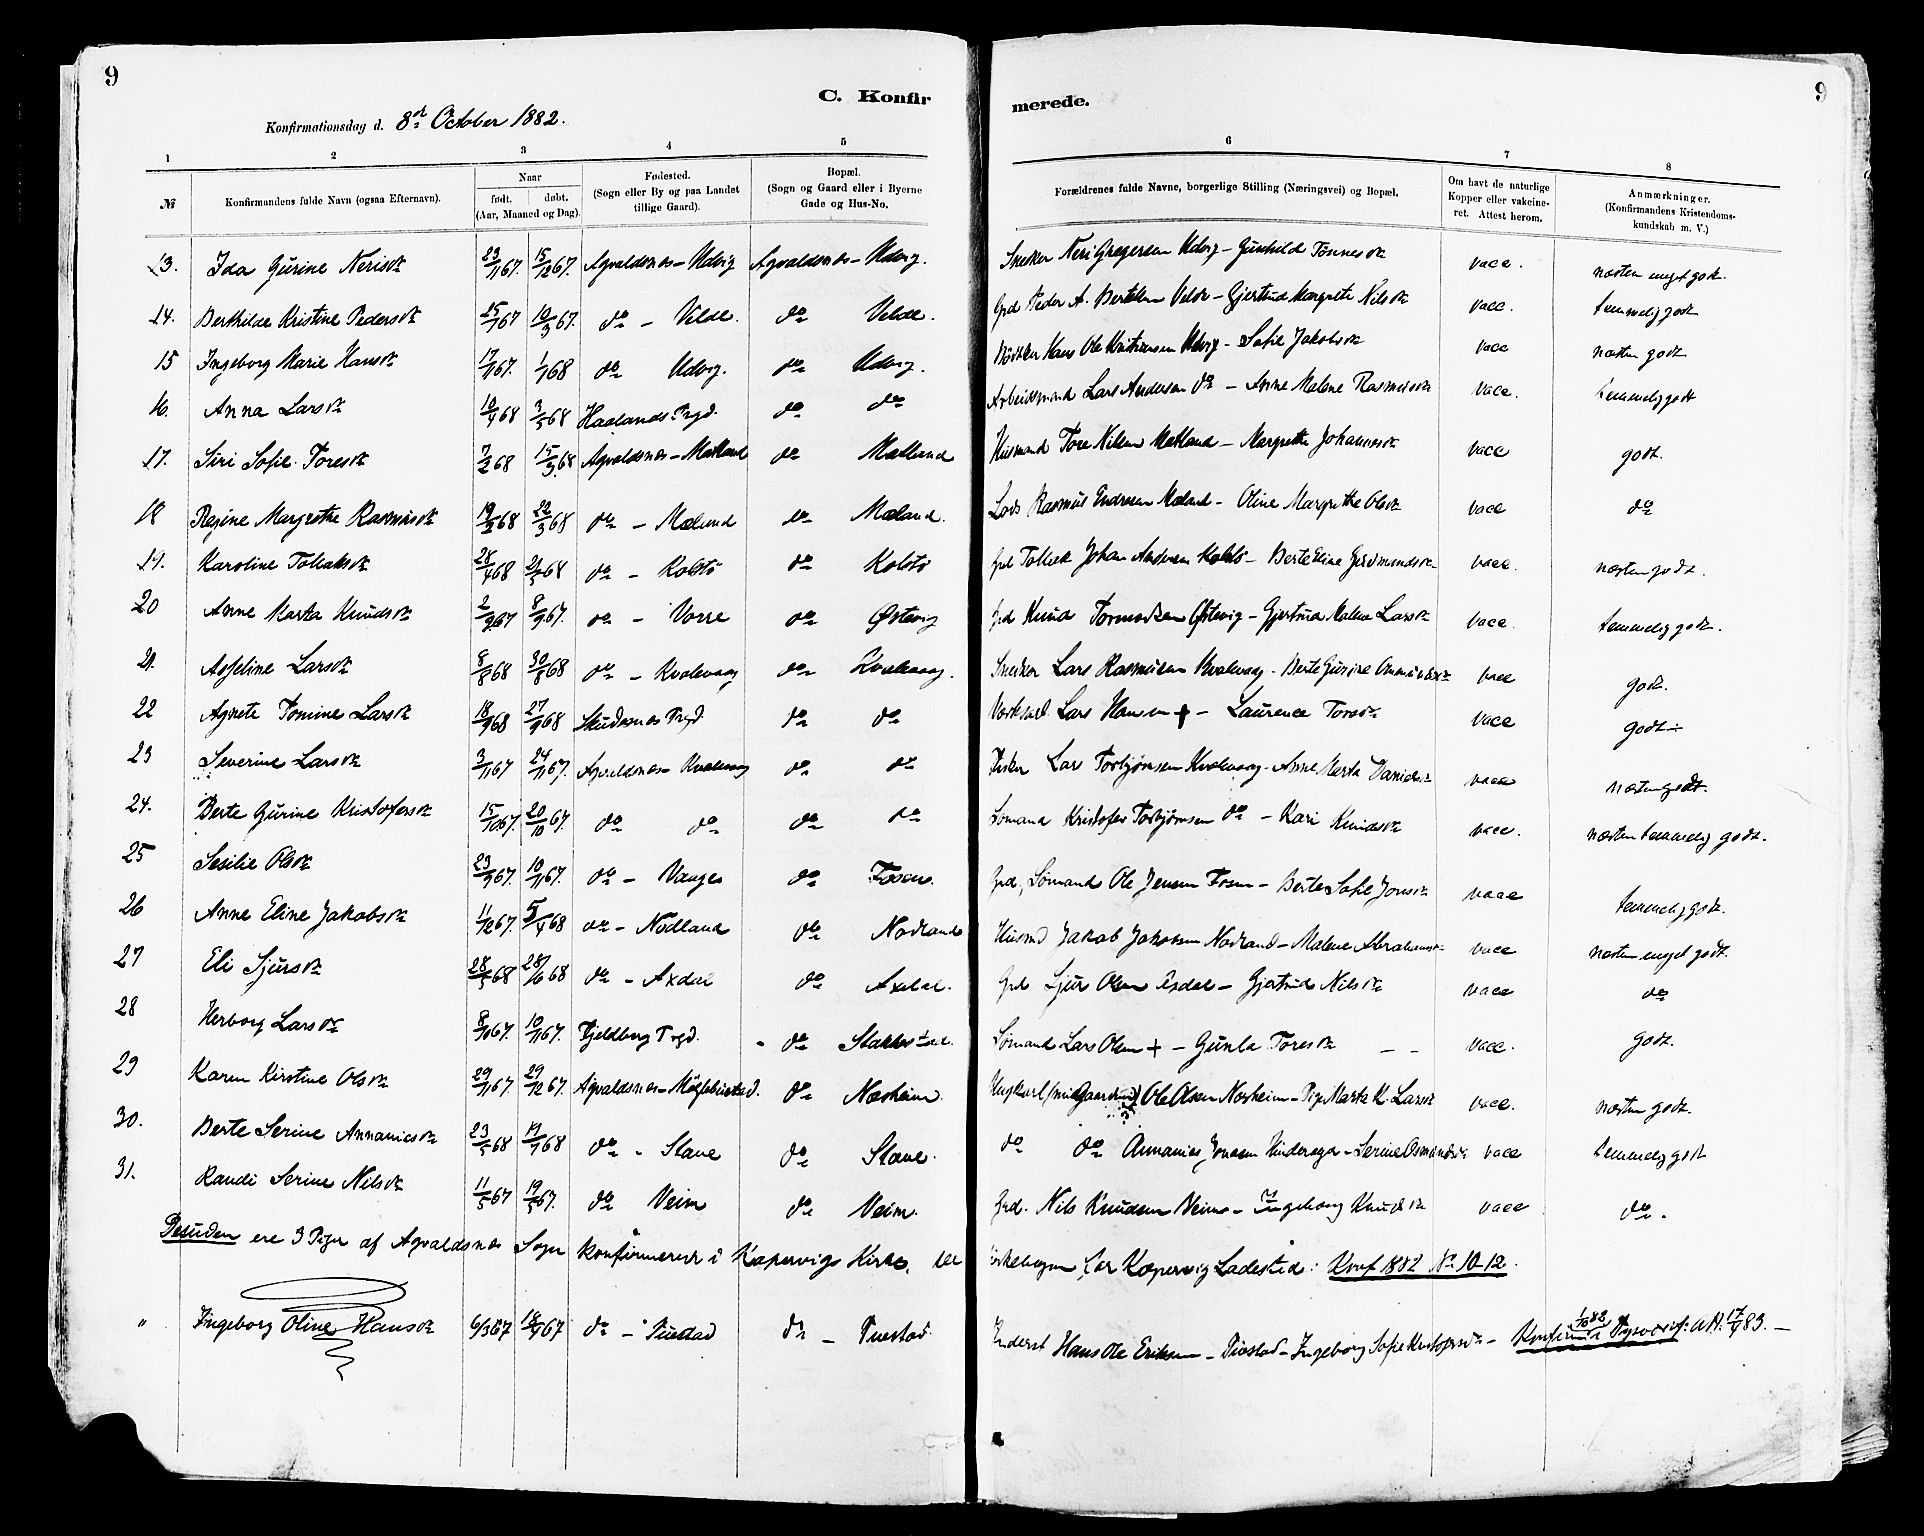 9
9
C. Konfir merede.
Konfirmationsdag d. 8de October 1882.
1 2 3 4 5 6 7 8
№ Konfirmandens fulde Navn (ogsaa Efternavn). Naar født. døbt. (Aar, Maaned og Dag). Fødested. (Sogn eller By og paa Landet tillige Gaard). Bopæl. (Sogn og Gaard eller i Byerne Gade og Hus-No. Forældrenes fulde Navne, borgerlige Stilling (Næringsvei) og Bopæl. Om havt de naturlige Kopper eller vakcineret. Attest herom. Anmærkninger. (Konfirmandens Kristendomskundskab m. V.)
13. Ida Gurine Nerisdtr 23/11 67. 15/12 67. Agvaldsnes - Udvig Agvaldsnes - Udvig. Snedker Neri Gregersen Udvig - Gunhilde Tønnesdtr vacc. næsten meget godt.
14. Berthilde Kristine Pedersdtr 25/1 67 10/3 67. do - Velde. do Velde. Grd Peder A. Bertelsen Velde - Gjertrud Margrete Nilsdtr vacc. temmelig godt
15 Ingeborg Marie Hansdtr 17/11 67. 1/1 68 do Udvig. do Udvig. Bødtker Hans Ole Kristiansen Udvig - Sofie Jakobsdtr vacc næsten godt
16. Anna Larsdtr 10/4 68 3/5 68 Haalands Prgd. do do Arbeidsmand Lars Andersen do - Anne Malene Rasmusdtr vacc. temmelig godt
17. Siri Sofie Toresdtr 7/2 68 15/3 68 Agvaldsnes - Matland do Matland Husmand Tore Nilsen Matland - Margrethe Johannesdtr vacc godt.
18 Regine Margrethe Rasmusdtr 19/2 68 22/3 68 do - Mæland do Mæland. Lods Rasmus Endresen Mæland - Oline Margrethe Olsdtr vacc do
19. Karoline Tollaksdtr 28/4 68 21/5 68 do - Kolstø do Kolstø Grd Tollak Johan Andersen Kolstø - Berte Eline Gudmundsdtr vacc. næsten godt.
20 Anne Marta Knudsdtr 2/9 67 8/9 67. do - Vorre do Østevig Grd Knud Tormodsen Østevig - Gjertrud Malene Larsdtr vacc. temmelig godt.
21. Asseline Larsdtr 8/8 68 30/8 68 do - Kvalevaag do Kvalevaag. Snedker Lars Rasmusen Kvalevaag - Berte Gurine vacc godt.
22 Agnete Tomine Larsdtr 18/9 68 27/9 68 Skudesnes Prgd. do do Lars Hansen + - Laurence Toresdtr vacc godt
23 Severine Larsdtr 3/11 67 24/11 67. Agvaldsnes - Kvalevaag do do Fisker Lars Torbjørnsen Kvalevaag - Anne Marta Danielsdtr vacc næsten godt.
24. Berte Gurine Kristofersdtr 15/10 67. 20/10 67. do do do do Sømand Kristofer Torbjørnsen do - Kari Knudsdtr vacc. næsten temmelig godt.
25 Sesilie Olsdtr 23/9 67. 10/11 67. do - Vaage do Fosen. Grd, Sømand Ole Jensen Fosen - Berte Sofie Jonsdtr vacc temmelig godt.
26 Anne Eline Jakobsdtr 11/12 67. 5/4 68 do - Nodland do Nodland Husmd Jakob Jakobsen Nodland - Malene Abrahamsdtr vacc næsten meget godt.
27 Eli Sjursdtr 28/5 68 28/6 68 do - Axdal do Axdal. Grd Sjur Olsen Axdal - Gjertrud Nilsdtr vacc do
28 Herborg Larsdtr 8/10 67. 10/11 67. Fjeldberg Prgd. do Stakkestad. Sømand Lars Olsen + - Gunla Toresdtr - - vacc. godt.
29 Karen Kirstine Olsdtr 29/11 67 29/12 67. Agvaldsnes - do Nærheim. Ungkarl Ole Olsen Norheim - Pige Marta K. Larsdtr vacc. næsten godt.
30. Berte Serine Annaniasdtr 23/5 68 19/7 68 do - Stave do Stave. do do Annanias Jonasen Hinderager - Serine Osmundsdtr vacc temmelig godt
31. Randi Serine Nilsdtr 11/5 67 19/5 67. do Veim do Veim. Grd. Nils Knudsen Veim - Ingeborg Knudsdtr vacc do.
Desuden ere 3 Piger af Agvaldsnes Sogn konfirmerede i Kopervigs Kirke, se Kirkebogen for Kopervig Ladested: Konf 1882 No 10-12.
" Ingeborg Oline Hansdtr 6/3 67 18/4 67 do - Tuestad do - Tuestad. Inderst Hans Ole Eriksen - Tuestad - Ingeborg Sofie Kristofersdtr - Konfirm. i Tysvær 1/10 82 17/4 83. -